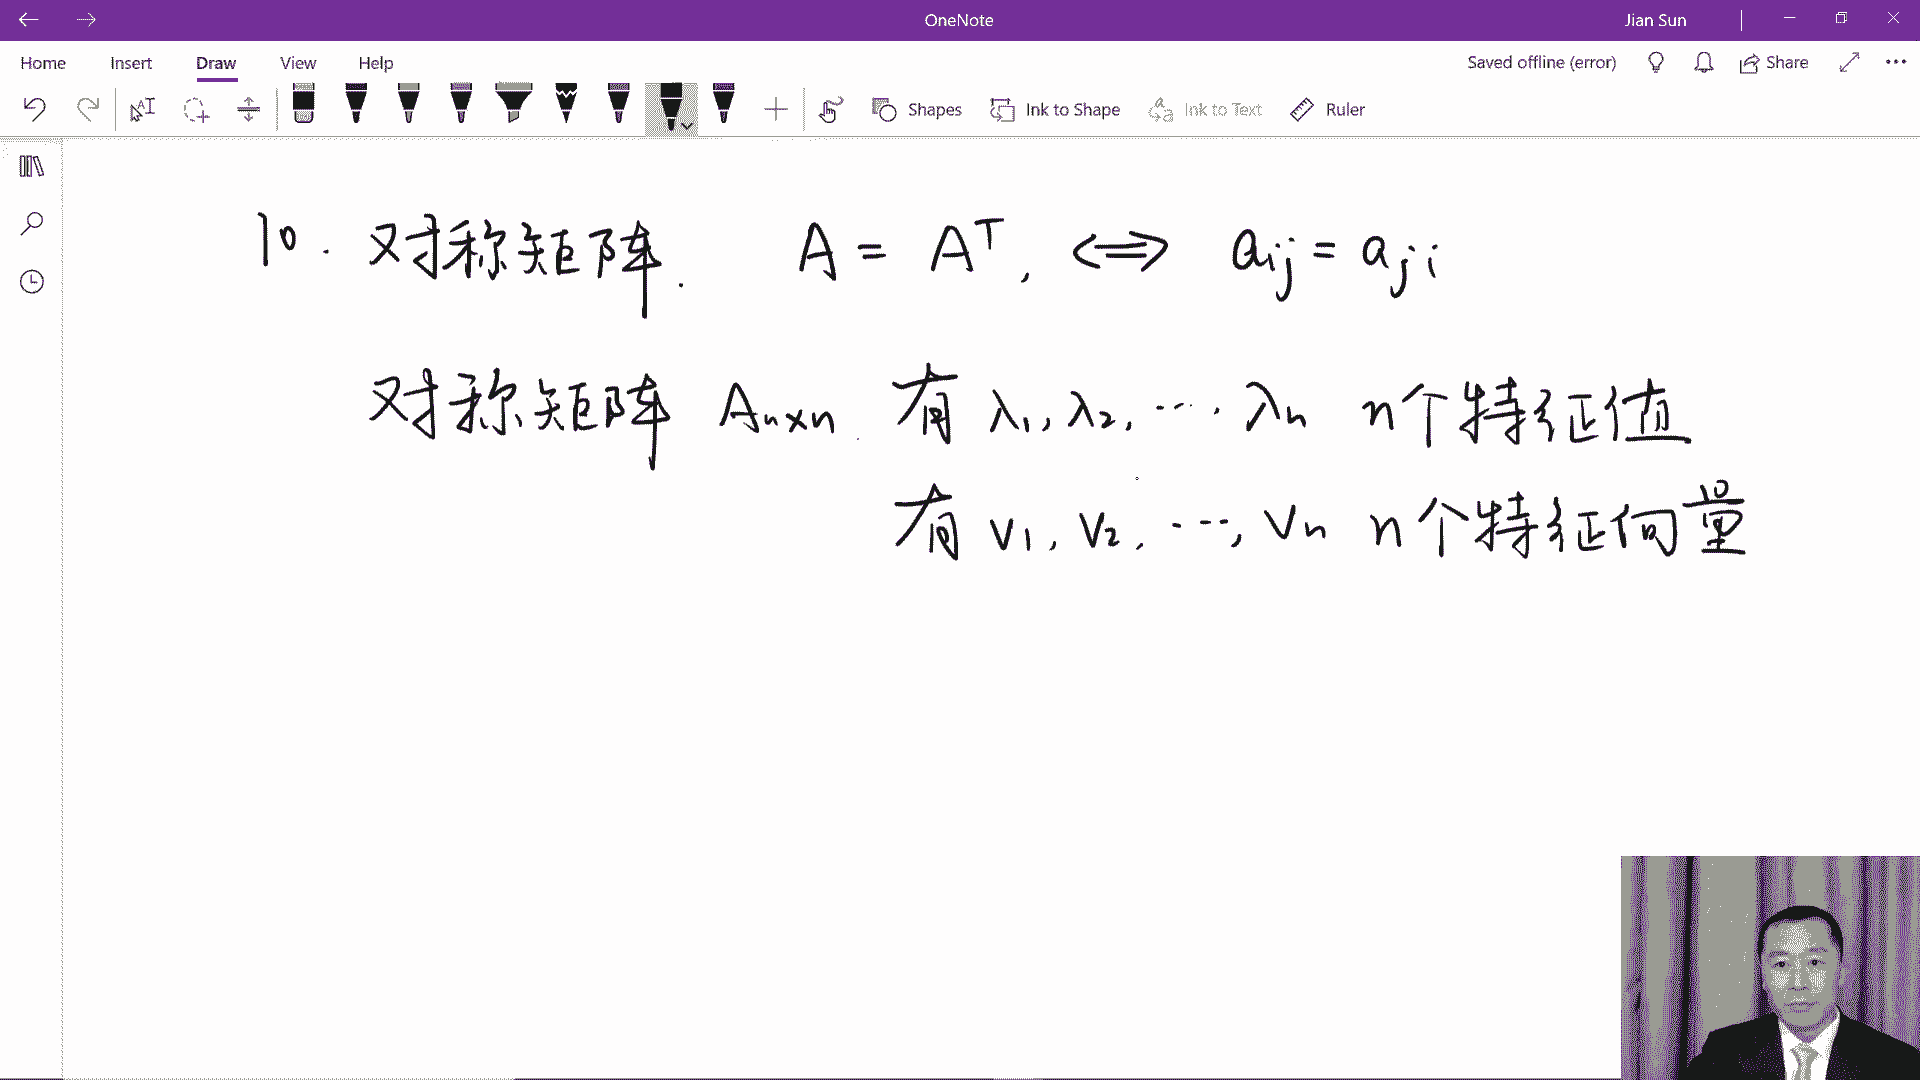 OneNote
Jian Sun
Home Insert Draw View Help
Saved offline (error) Share
Shapes Ink to Shape Ink to Text Ruler
10. 对称矩阵. A = Aᵀ, ⟺ aij = aji
对称矩阵 An×n 有 λ1, λ2, ⋯, λn n个特征值
有 v1, v2, ⋯, vn n个特征向量